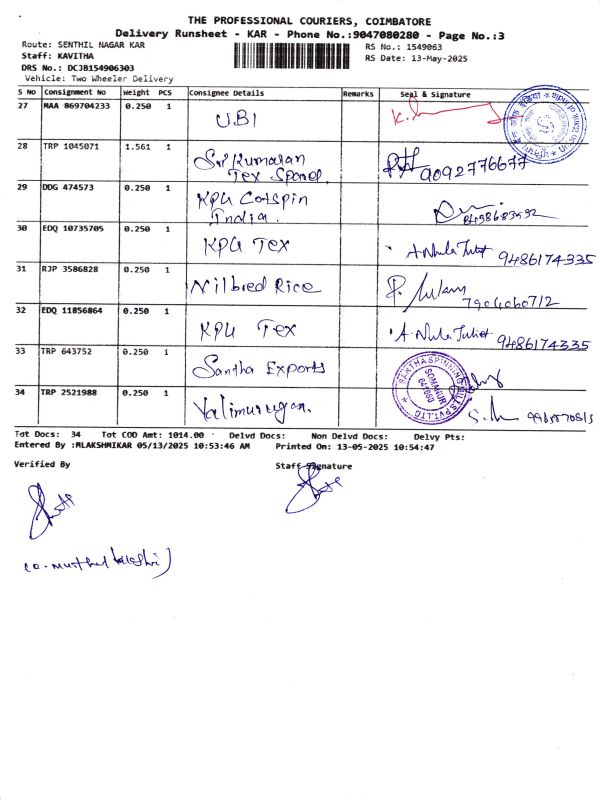 THE PROFESSIONAL COURIERS, COIMBATORE
Delivery Runsheet - KAR - Phone No.:9047080280 - Page No.:3
Route: SENTHIL NAGAR KAR
Staff: KAVITHA
DRS No.: DCJB154906303
Vehicle: Two Wheeler Delivery
RS No.: 1549063
RS Date: 13-May-2025
S No Consignment No Weight PCS Consignee Details Remarks Seal & Signature
27 MAA 869704233 0.250 1 UBI
28 TRP 1045071 1.561 1 Sri Kumaran
Tex Spared 9092776677
29 DDG 474573 0.250 1 KPG Cotspin
India.
30 EDQ 10735705 0.250 1 KPG Tex 9486174335
31 RJP 3586828 0.250 1 Nilbred Rice
32 EDQ 11856864 0.250 1 KPG Tex 9486174335
33 TRP 643752 0.250 1 Santha Exports
SANTHA SPINNING MILLS
SOMANUR
641668
34 TRP 2521988 0.250 1 Valimurugan.
Tot Docs: 34 Tot COD Amt: 1014.00 Delvd Docs: Non Delvd Docs: Delvy Pts:
Entered By :MLAKSHMIKAR 05/13/2025 10:53:46 AM Printed On: 13-05-2025 10:54:47
Verified By Staff Signature